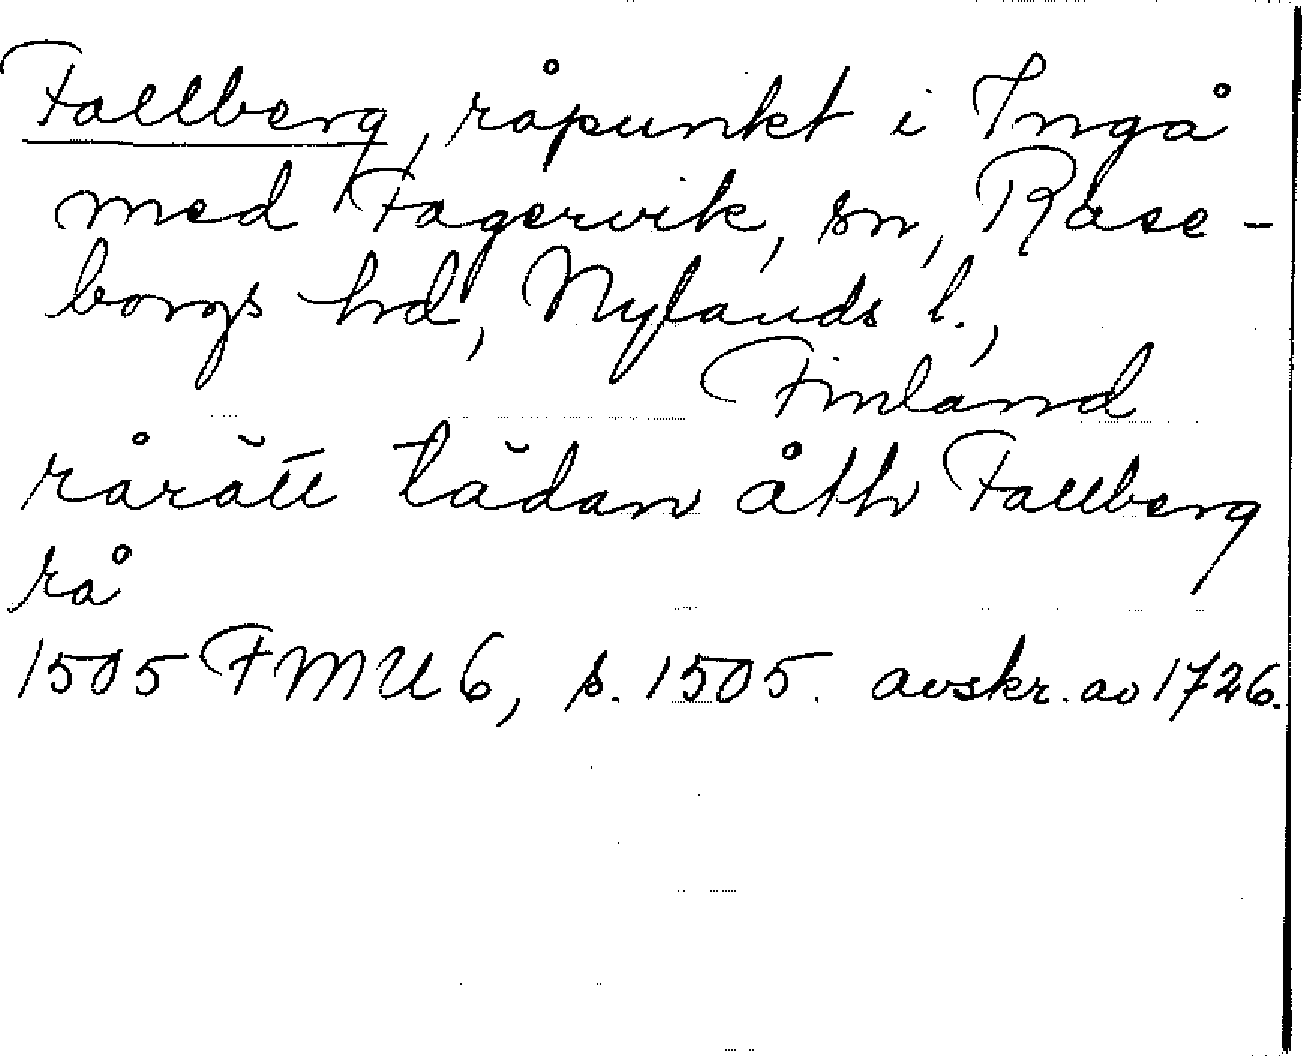 Fallberg, råpunkt i Ingå
med Fagervik, sn, Rase-
borgs hd, Nylands l.,
Finland
råräll tädan åth Fallberg
rå
1505 FMU 6, s. 1505. avskr. av 1726.